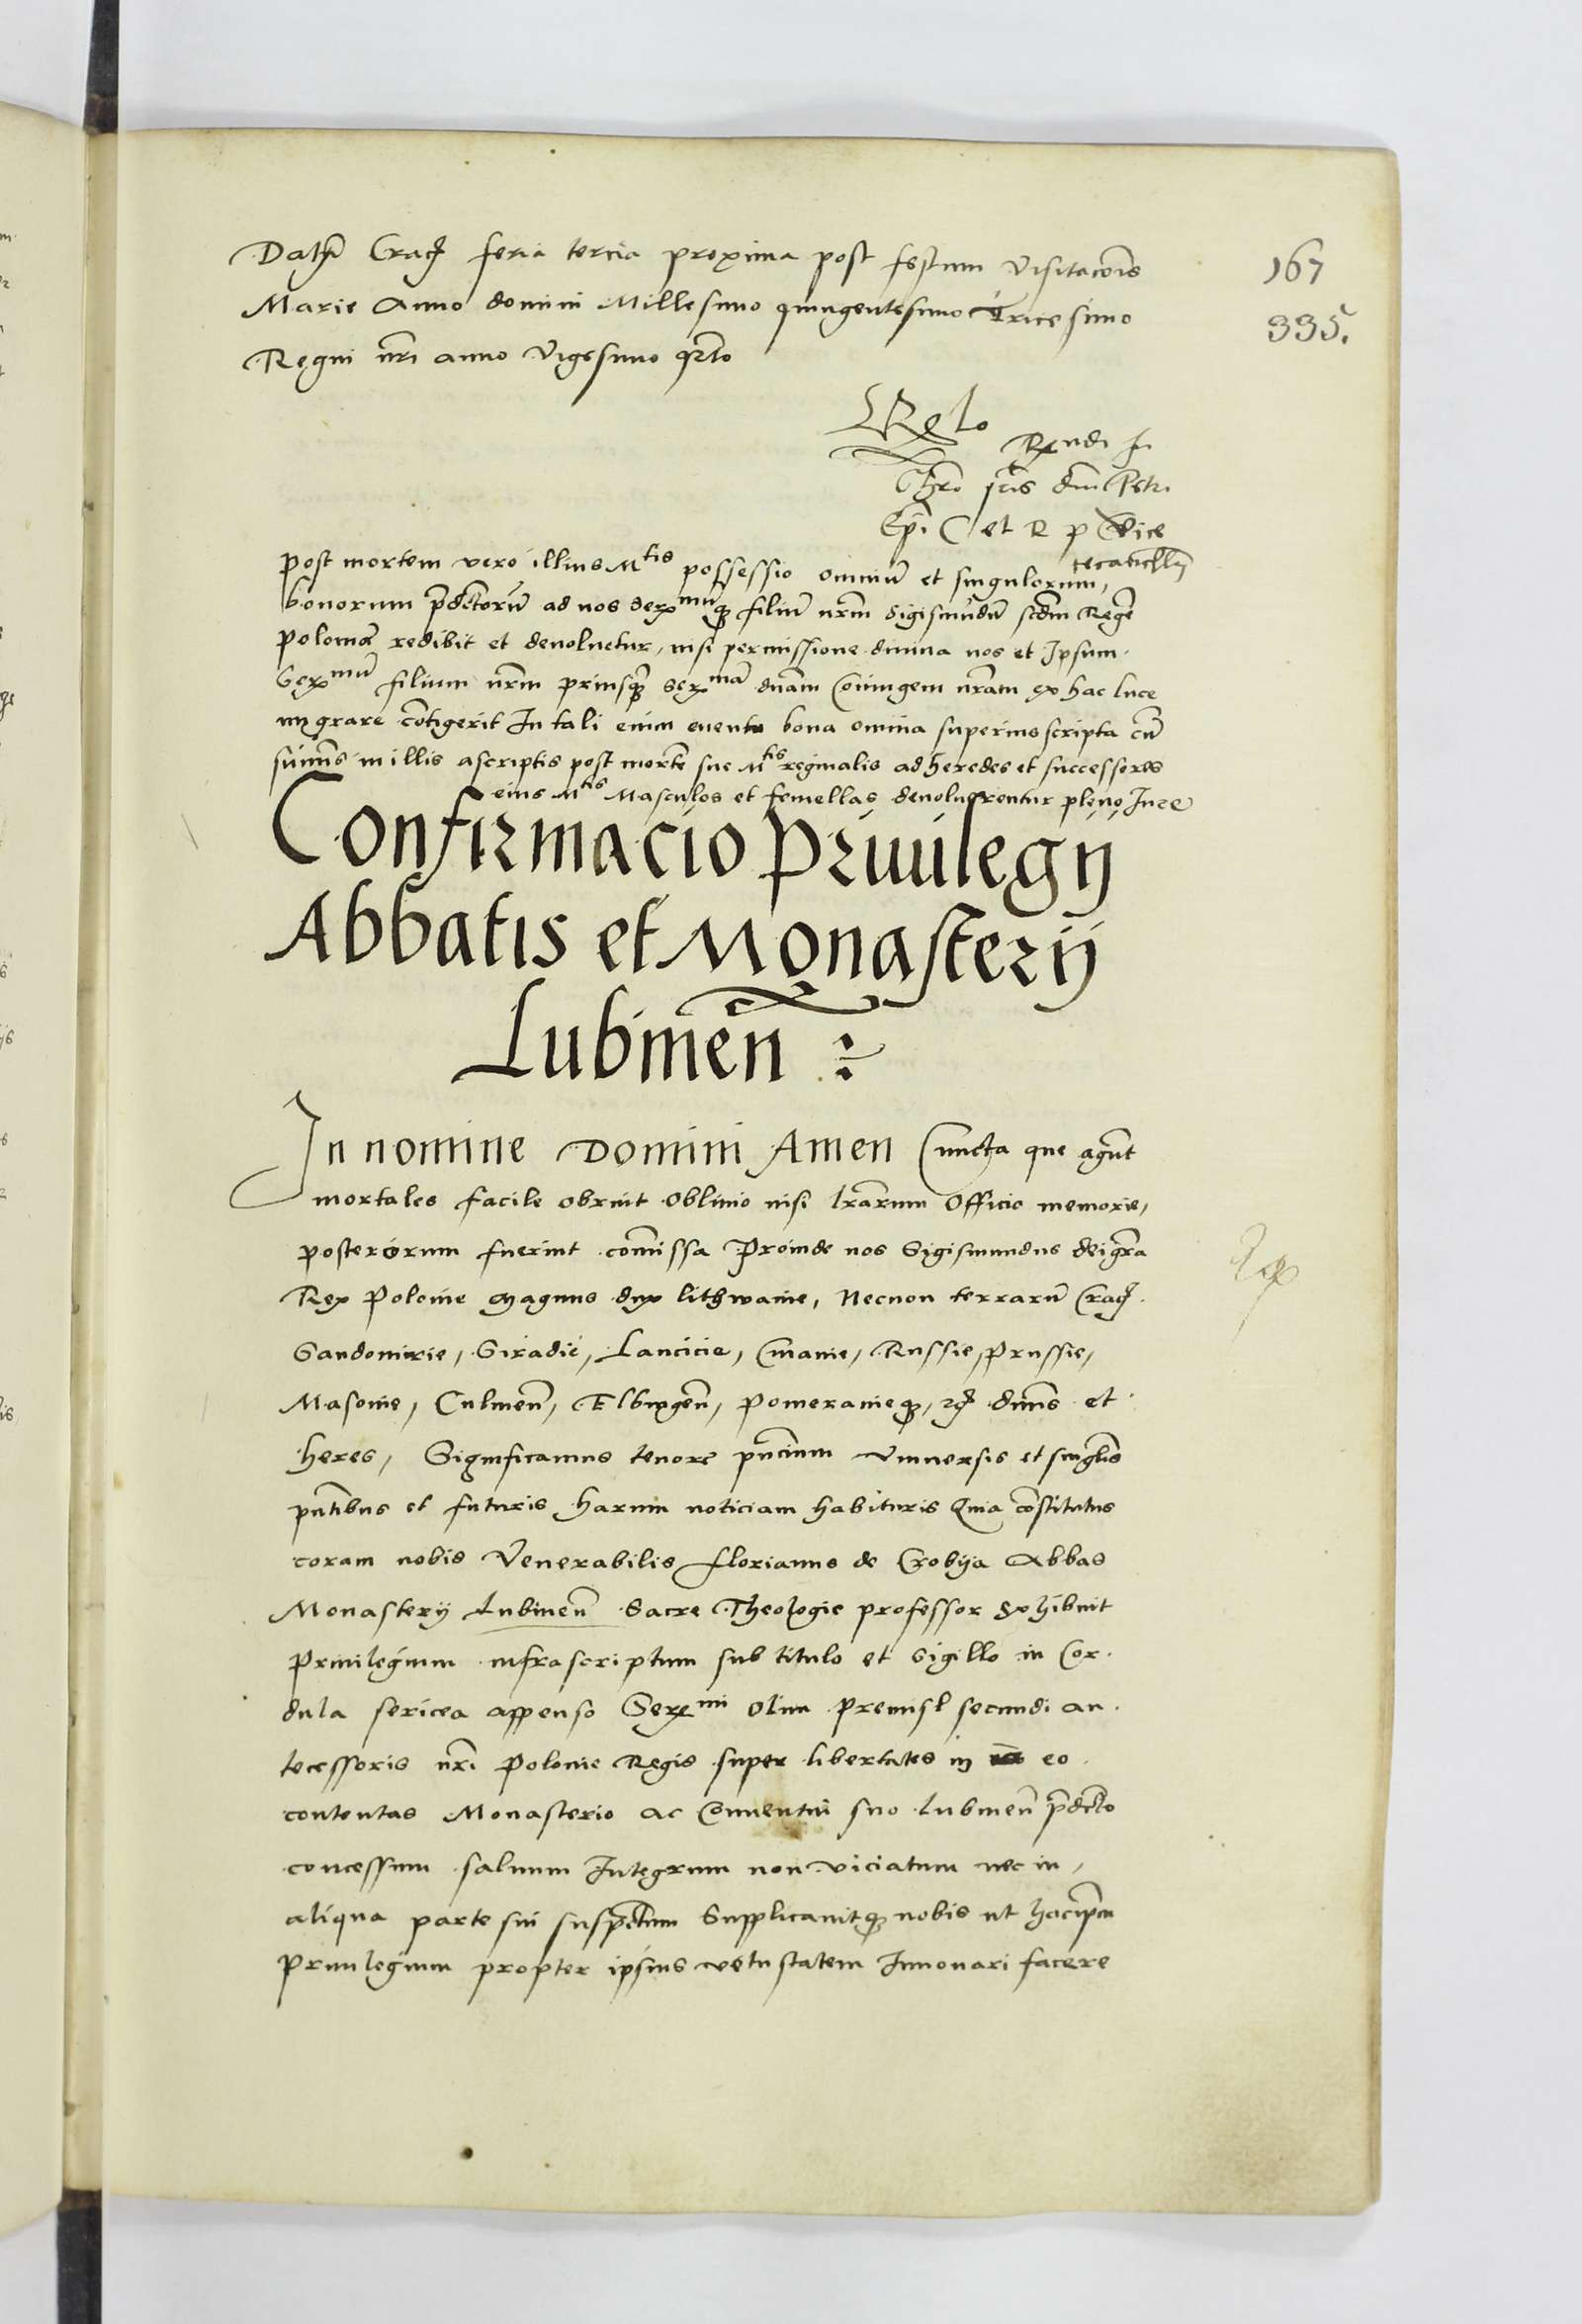 Datum Crac feria tercia proxima post festum Visitacois
167
Marie Anno domini Millesimo quingentesimo Tricesimo
335.
Regni nri anno Vigesimo qrto
Relo Rendi In
Chro pris dni Petri
Epi C et R P Vice
cecancellarij
post mortem vero illius Mtis possessio omniu et singulorum,
bonorum pdctoru ad nos Serxmuq filiu nrm Sigismudu scdm Rege
polonie redibit et devoluetur, nisi permissione diuina nos et Ipsum
Serxmu filium nrm priusq Serxma dnam Coniugem nram ex hac luce
migrare cotigerit In tali enim euentu bona omnia superius scripta cu
sumis in illis ascriptis post morte sue Mtis reginalis ad heredes et successores
eius Mtis Masculos et femellas devoluerentur pleno Iure
Confirmacio Priuilegij
Abbatis et Monasterij
Lubinen
In nomine Domini Amen Cuncta que agunt
mortales facile obruit obliuio nisi lrarum Officio memorie,
posterorum fuerint comissa Proinde nos Sigismundus dei gra
Rex Polonie Magnus dux lithwanie, Necnon terraru Crac
Sandomirie, Siradie, Lancicie, Cuiauie, Russie, Prussie,
Masouie, Culmen, Elbingen, Pomeranieq, zc dnns et
heres, Significamus tenore pncium Vniuersis et singlis
pntibus et futuris harum noticiam habituris Quia costitutus
coram nobis Venerabilis Florianus de Crobija Abbas
Monasterij Lubinen Sacre Theologie professor exhibuit
Priuilegium infrascriptum sub titulo et sigillo in Cor
dula sericea appenso Serxmi olim Premisl secundi an
tecessoris nri Polonie Regis super libertates in eo
contentas Monasterio ac Conuentui suo Lubinen pdcto
concessum saluum Integrum non viciatum nec in,
aliqua parte sui suspectum Supplicauitq nobis ut hoc ipm
Priuilegium propter ipsius vetustatem Innouari facere